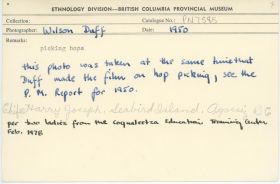 ETHNOLOGY DIVISION—BRITISH COLUMBIA PROVINCIAL MUSEUM
Catalogue No.: PN7595
Photographer: Wilson Duff Date: 1950
Remarks:
picking hops
this photo was taken at the same time that
Duff made the film on hop picking, see the
P. M. Report for 1950.
Harry Joseph, Seabird Island,
per two ladies from the Coqualeetza Education Training Center
Feb. 1978